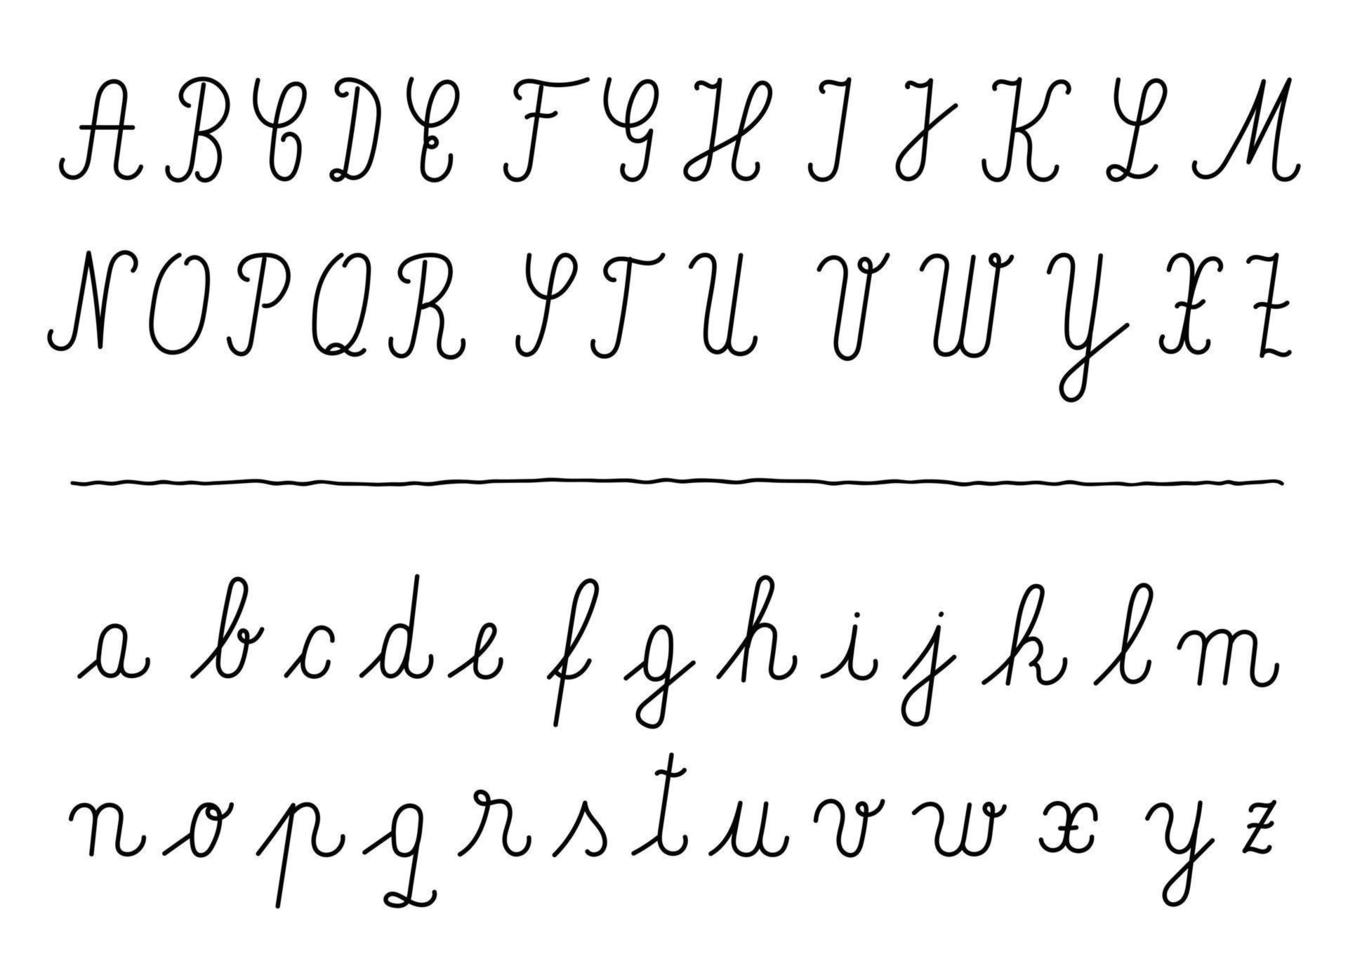 A B C D E F G H I J K L M
N O P Q R S T U V W Y X Z
a b c d e f g h i j k l m
n o p q r s t u v w x y z